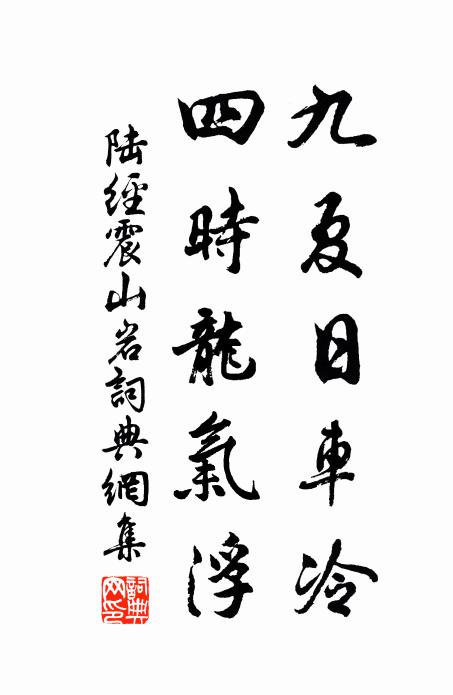 九夏日車冷
四時龍氣浮
陸經震山岩詞典網集
詞典